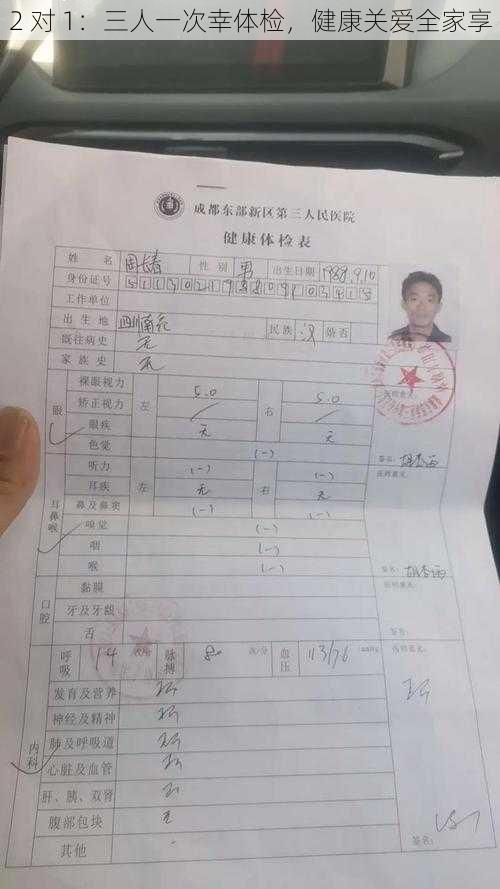 2 对 1：三人一次幸体检，健康关爱全家享
成都东部新区第三人民医院
健康体检表
姓名 性别 男 出生日期 1988.9.10
身份证号
工作单位
出生地 民族 汉 婚否
既往病史 无
家族史 无
医师意见：
眼
裸眼视力 左 5.0 右 5.0
矫正视力 / /
眼疾 无 无
色觉 (-) 签名：
耳鼻喉
听力 左 (-) 右 (-) 医师意见：
耳疾 无 无
鼻及鼻窦 (-) (-)
嗅觉 (-)
咽 (-)
喉 (-) 签名：
口腔
黏膜 医师意见：
牙及牙龈
舌 签号：
内科
呼吸 14 次/分 脉搏 80 次/分 血压 113/76 mmHg 医师意见：
发育及营养
神经及精神
肺及呼吸道
心脏及血管
肝、胰、双肾
腹部包块 无
其他 签名：